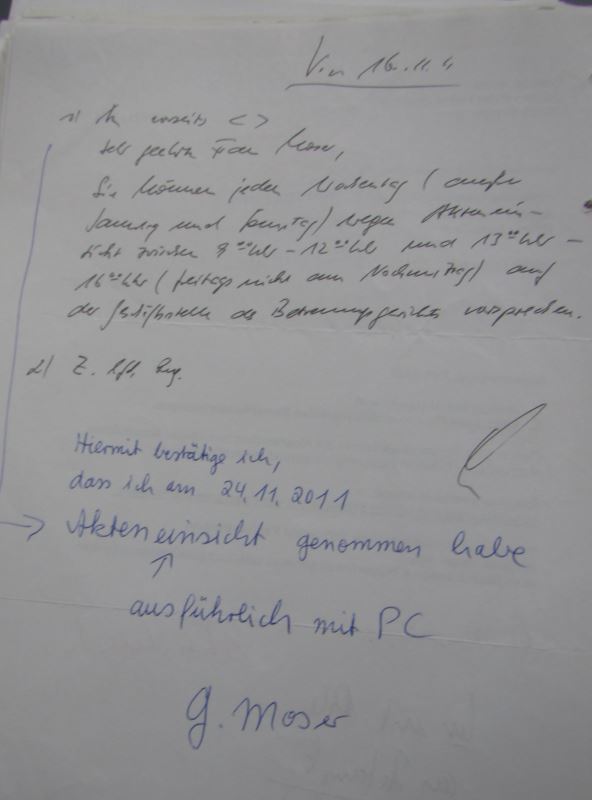 V. v. 16.11.11
1) An umseits < >
Sehr geehrte Frau Moser,
Sie können jeden Wochentag (außer
Samstag und Sonntag) wegen Aktenein-
sicht zwischen 9⁰⁰ Uhr - 12⁰⁰ Uhr und 13⁰⁰ Uhr -
16⁰⁰ Uhr (freitags nicht am Nachmittag) auf
der Geschäftsstelle des Betreuungsgerichts vorsprechen.
2) Z.
Hiermit bestätige ich,
dass ich am 24.11.2011
→ Akteneinsicht genommen habe
↑
ausführlich mit PC
G. Moser